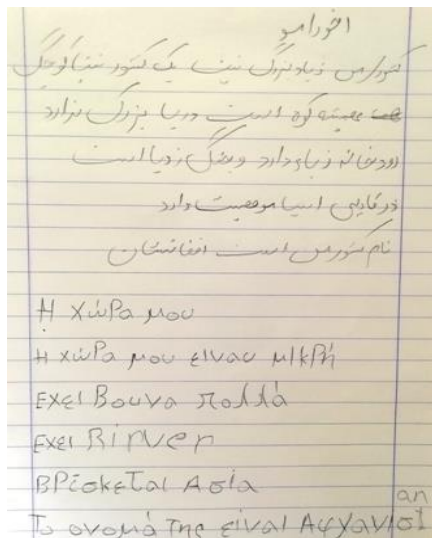 کشور من زیاد بزرگ نیست یک کشور نسبتا کوچک
همیشه کوه است دریا بزرگ ندارد
رودخانه زیاد دارد و جنگل زیبا است
در قاره‌ی اسیا موقعیت دارد
نام کشور من است افغانستان
Η χώρα μου
Η χώρα μου είναυ μικρή
Εχει Βουνα πολλά
Εχει Rirver
Βρίσκεται Ασία
Το ονομά της είναι Αφγανιστ
an